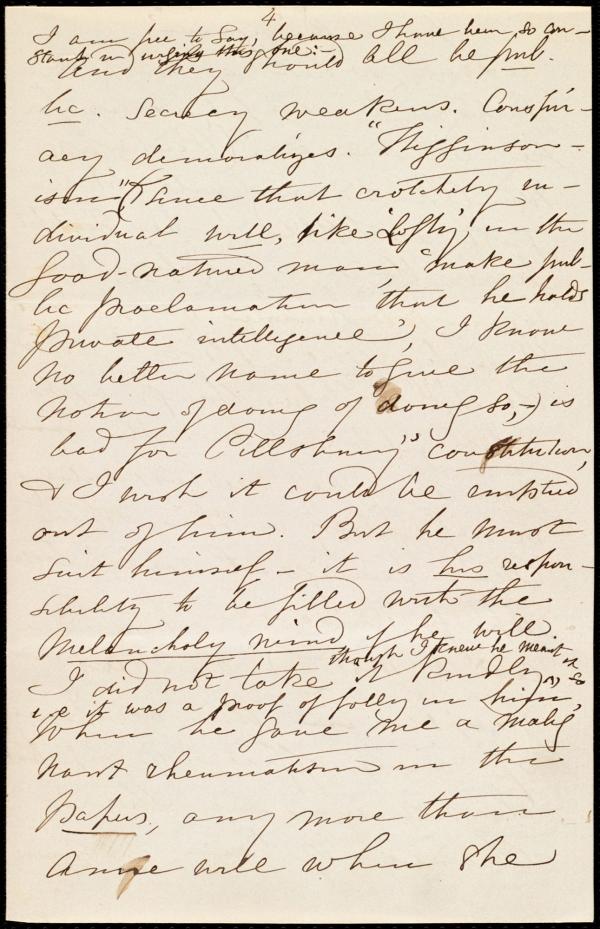 4
I am free to say, because I have been so con-
stantly urging this one:-
and they should all be pub-
lic. Secrecy weakens. Conspir-
acy demoralizes. "Higginson-
ism" (since that crotchety in-
dividual will, like 'Lofty' in the
Good-natured man, "make pub-
lic proclamation that he holds
private intelligence", I know
no better name to give the
notion of doing of doing so,-) is
bad for Pillsbury's constitution,
& I wish it could be emptied
out of him. But he must
suit himself - it is his respon-
sibility to be filled with the
Melancholy wind if he will.
though I knew he meant it so
I did not take it kindly
i.e. it was a proof of folly in him,
When he gave me a malig
nant rheumatism in the
papers, any more than
Anne will when she